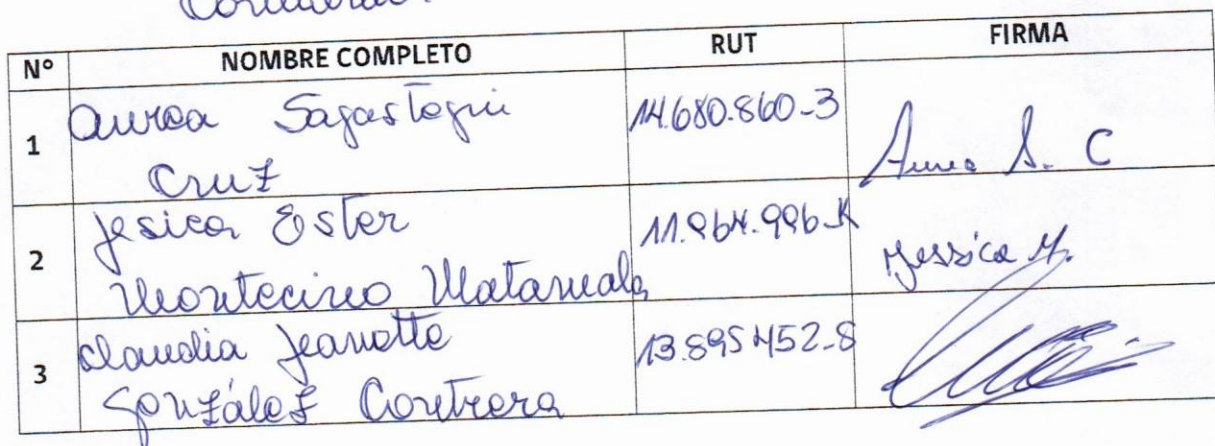 Nº NOMBRE COMPLETO RUT FIRMA
1 Aurea Sagastegui Cruz 14.680.860-3 Aurea S. C
2 Jesica Ester Montecino Matamala 11.964.996-K Jessica M.
3 Claudia Jeanotte González Contrera 13.895452-8